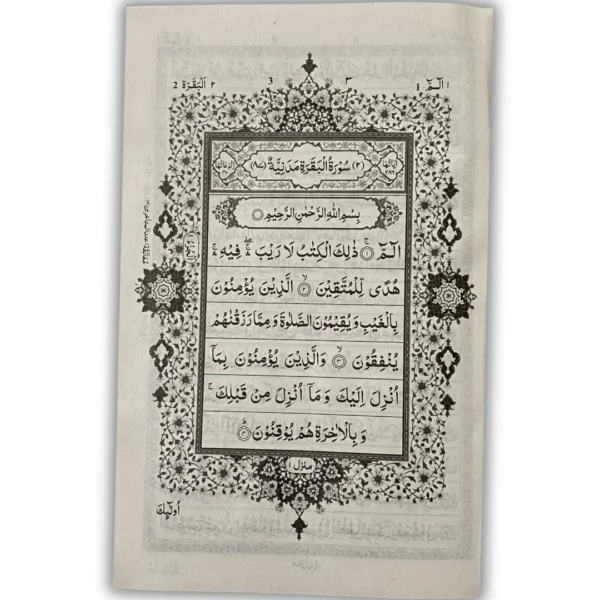 الٓمّٓ ١ 1
٣ 3
٢ اَلْبَقَرَة 2
اٰيَاتُهَا ٢٨٦
(٢) سُوْرَةُ الْبَقَرَةِ مَدَنِيَّةٌ (٨٧)
رُكُوْعَاتُهَا
بِسْمِ اللّٰهِ الرَّحْمٰنِ الرَّحِيْمِ
الٓمّٓ ۚ﴿١﴾ ذٰلِكَ الْكِتٰبُ لَا رَيْبَ ۛۖ فِيْهِ ۛۚ
هُدًى لِّلْمُتَّقِيْنَ ۙ﴿٢﴾ الَّذِيْنَ يُؤْمِنُوْنَ
بِالْغَيْبِ وَيُقِيْمُوْنَ الصَّلٰوةَ وَمِمَّا رَزَقْنٰهُمْ
يُنْفِقُوْنَ ۙ﴿٣﴾ وَالَّذِيْنَ يُؤْمِنُوْنَ بِمَاۤ
اُنْزِلَ اِلَيْكَ وَمَاۤ اُنْزِلَ مِنْ قَبْلِكَ ۚ
وَبِالْاٰخِرَةِ هُمْ يُوْقِنُوْنَ ؕ﴿٤﴾
منزل ١
اُولٰٓئِكَ